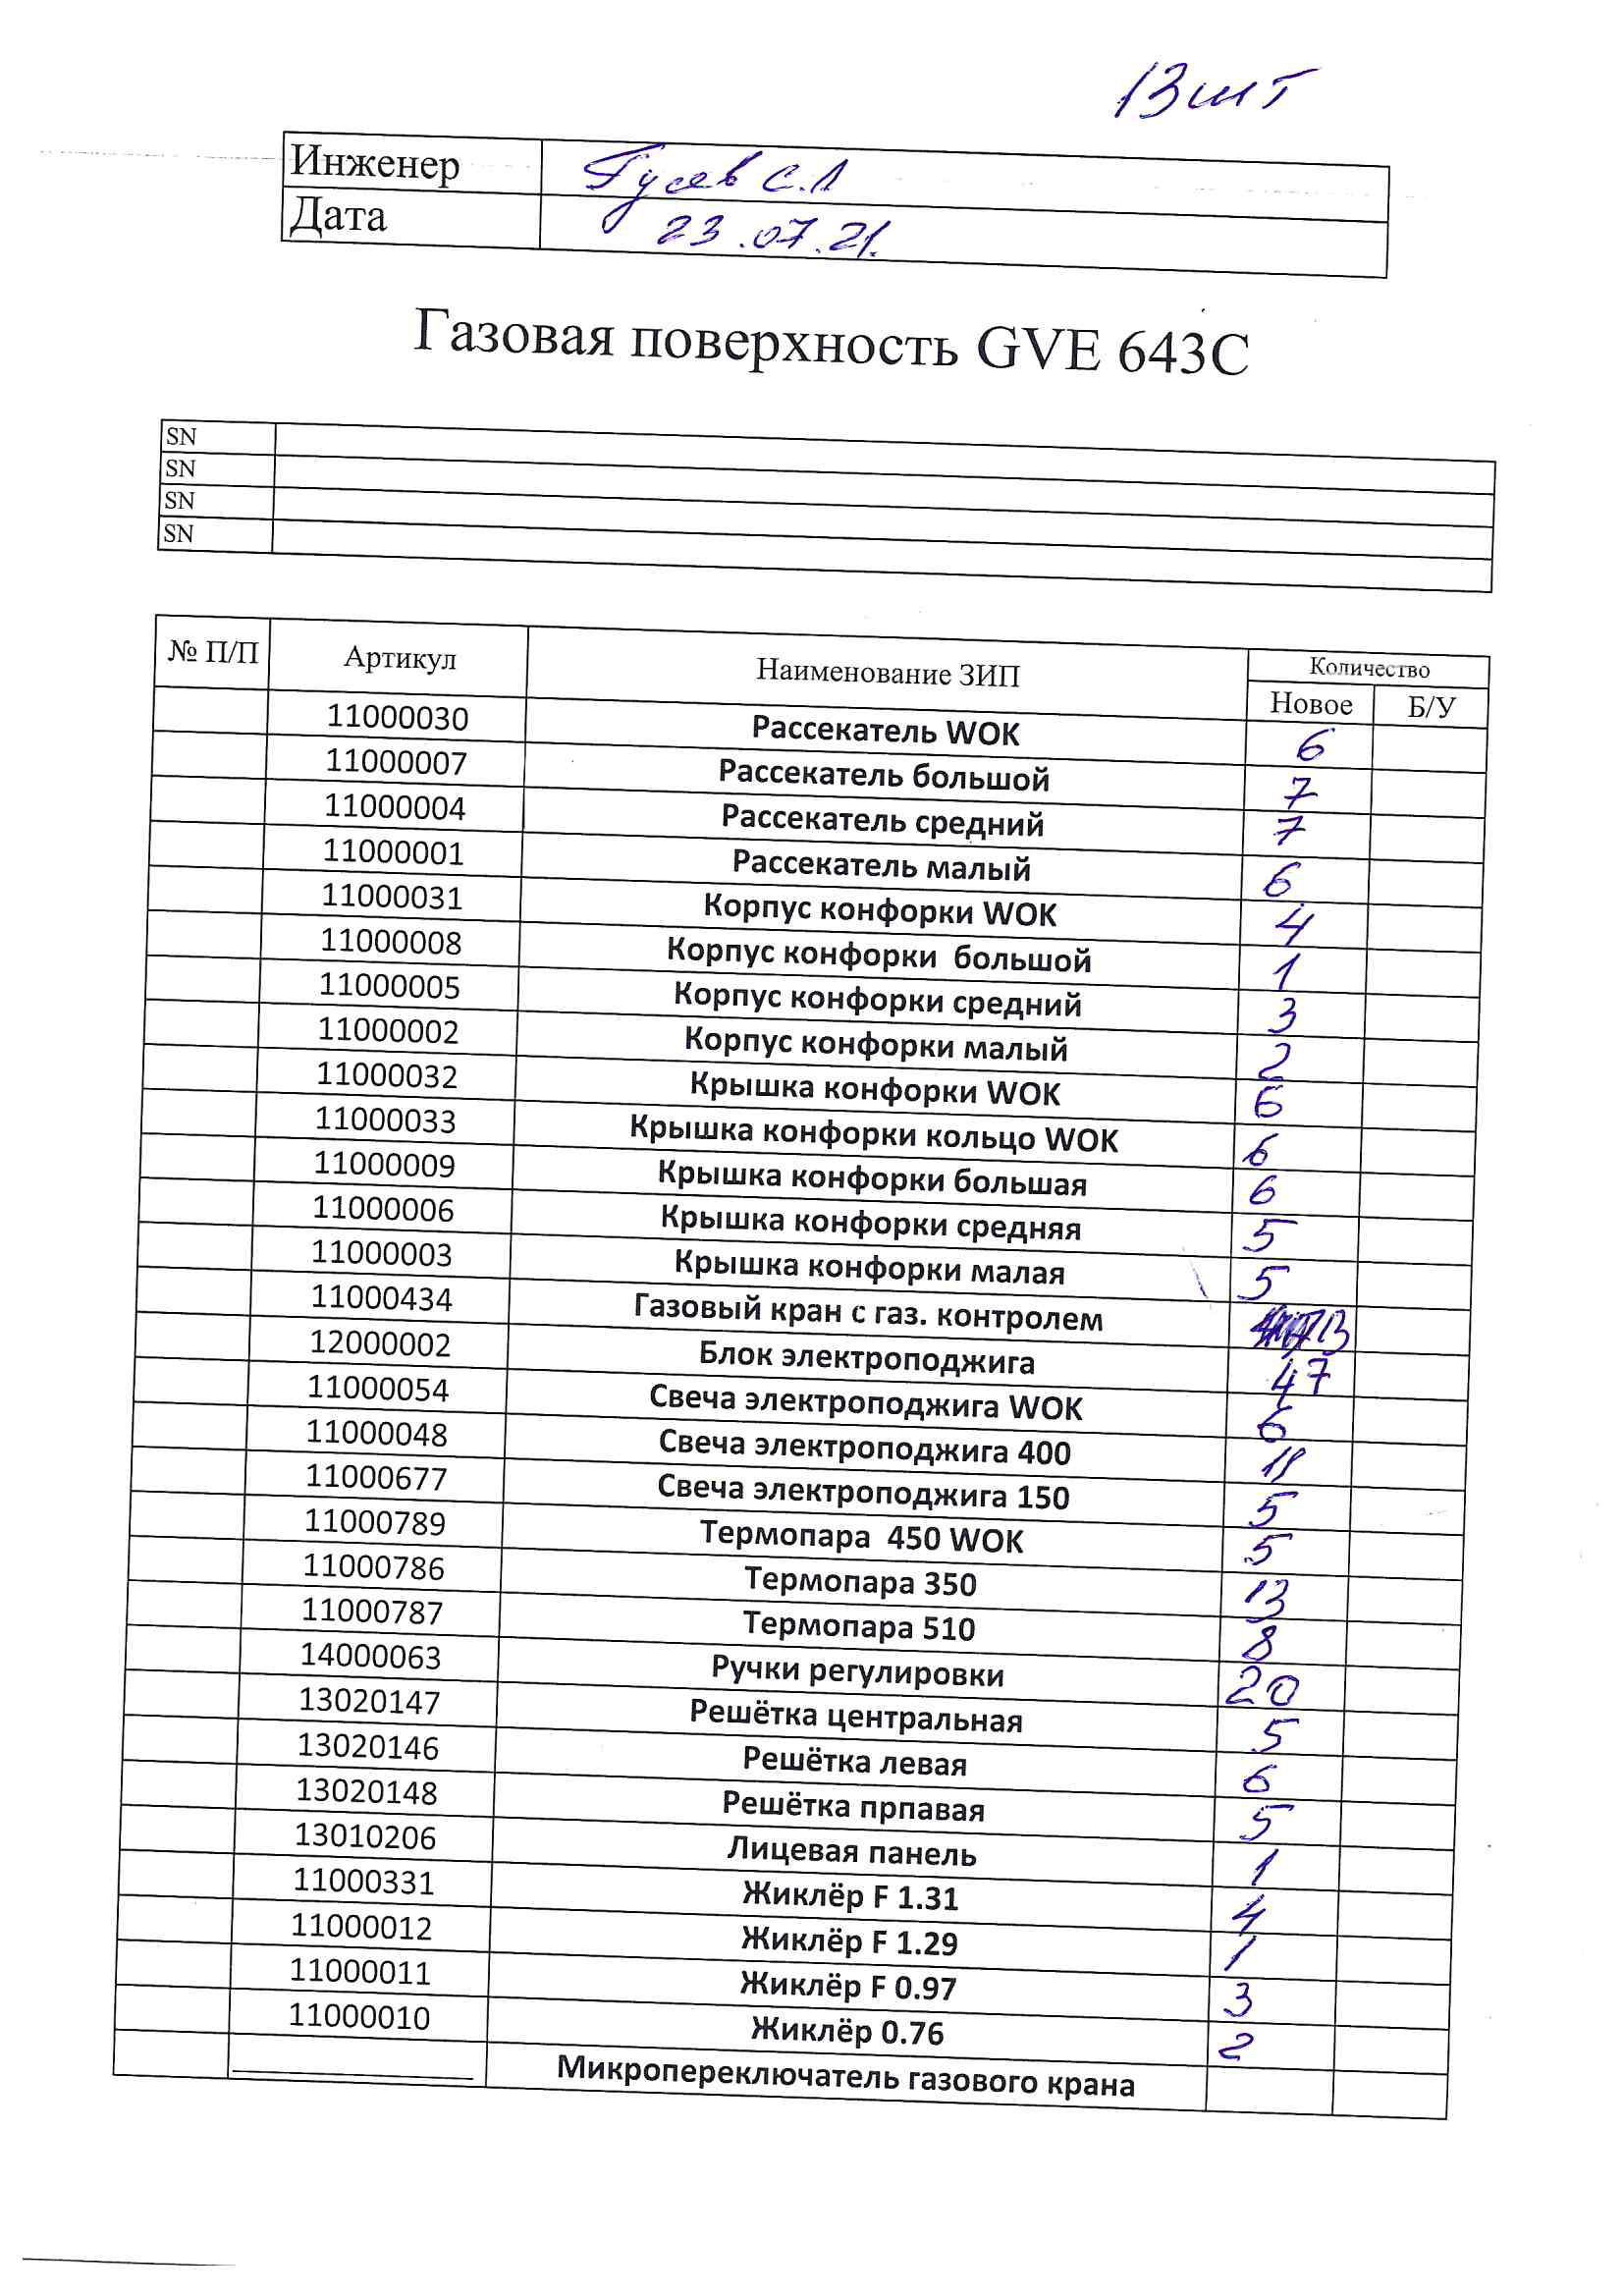 13 шт
Инженер Гусев С.Л
Дата 23.07.21.
Газовая поверхность GVE 643C
SN
SN
SN
SN
№ П/П Артикул Наименование ЗИП Количество
Новое Б/У
11000030 Рассекатель WOK 6
11000007 Рассекатель большой 7
11000004 Рассекатель средний 7
11000001 Рассекатель малый 6
11000031 Корпус конфорки WOK 4
11000008 Корпус конфорки большой 1
11000005 Корпус конфорки средний 3
11000002 Корпус конфорки малый 2
11000032 Крышка конфорки WOK 6
11000033 Крышка конфорки кольцо WOK 6
11000009 Крышка конфорки большая 6
11000006 Крышка конфорки средняя 5
11000003 Крышка конфорки малая 5
11000434 Газовый кран с газ. контролем
12000002 Блок электроподжига
11000054 Свеча электроподжига WOK 6
11000048 Свеча электроподжига 400
11000677 Свеча электроподжига 150 5
11000789 Термопара 450 WOK 5
11000786 Термопара 350 13
11000787 Термопара 510 8
14000063 Ручки регулировки 20
13020147 Решётка центральная 5
13020146 Решётка левая 6
13020148 Решётка прпавая 5
13010206 Лицевая панель 1
11000331 Жиклёр F 1.31 4
11000012 Жиклёр F 1.29 1
11000011 Жиклёр F 0.97 3
11000010 Жиклёр 0.76 2
Микропереключатель газового крана